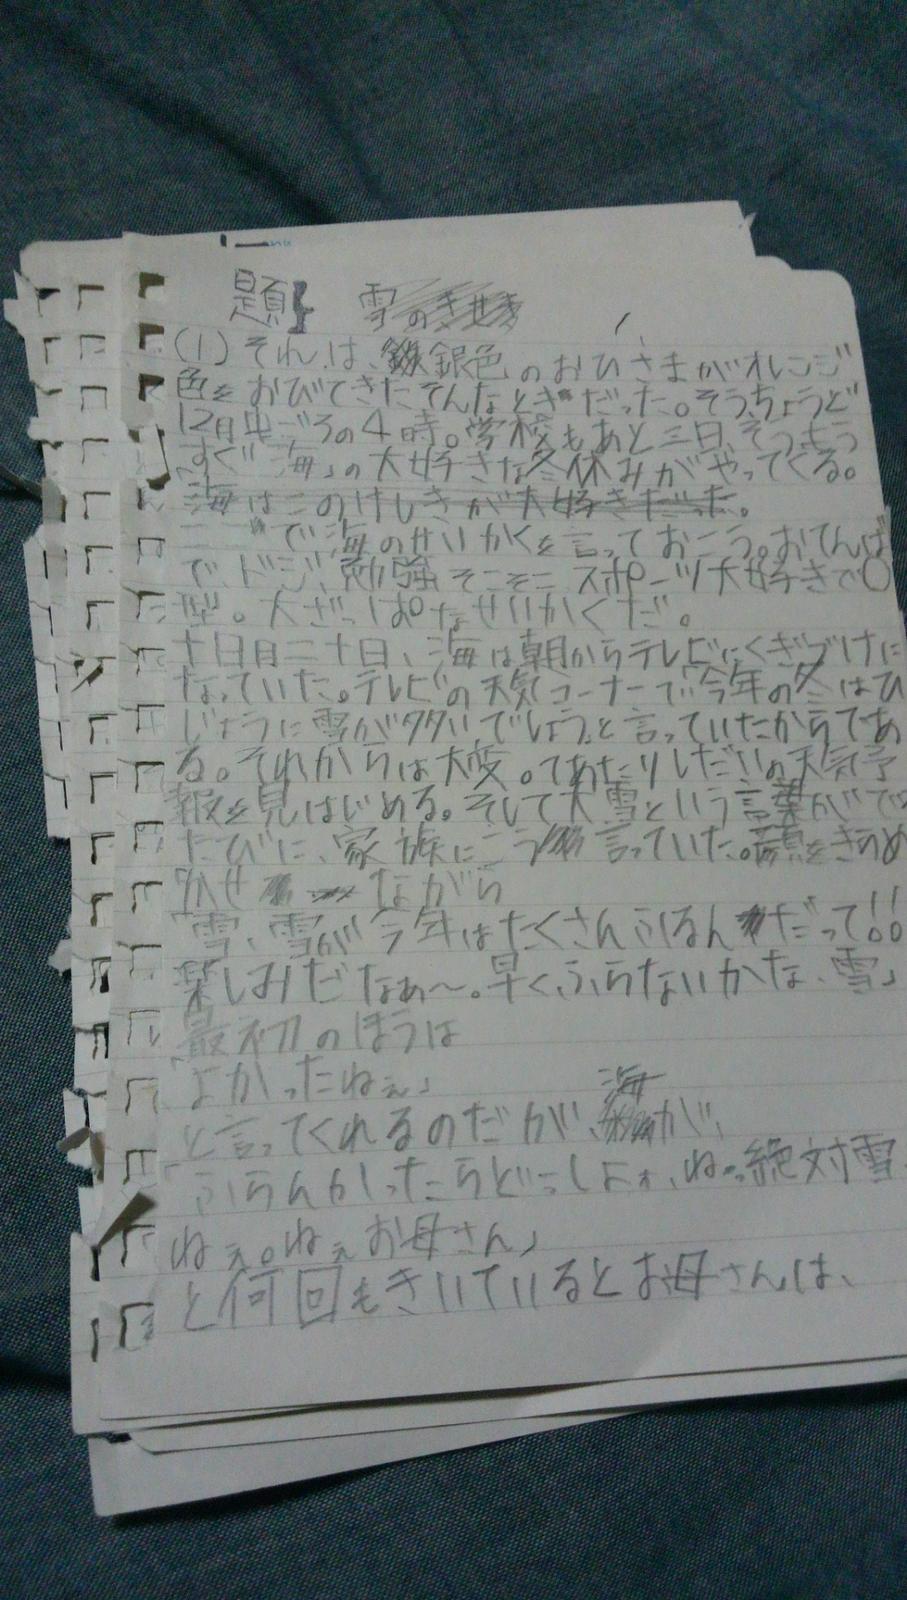 題 雪の
(1)それは、銀色のおひさまがオレンジ
色をおびてきたそんなときだった。そうちょうど
12日中ごろの4時。学校もあと三日、そつもう
すぐ「海」の大好きな冬休みがやってくる。
海はこのけしきが大好きだった。
ここで海のせいかくを言っておこう。おてんば
で、ドジ、勉強そこそこ、スポーツ大好きでO
型。大ざっぱなせいかくだ。
十日目二十日、海は朝からテレビにくぎづけに
なっていた。テレビの天気コーナーで「今年の冬はひ
じょうに雪が多いでしょう」と言っていたからであ
る。それからは大変。てあたりしだいの天気予
報を見はじめる。そして大雪という言葉がで
たびに、家族にこう言っていた。顔をきらめ
かせながら
「雪、雪が今年はたくさんふるんだって!!
楽しみだなぁ〜。早くふらないかな、雪」
最初のほうは
「よかったねぇ」
と言ってくれるのだが、海が、
「ふらんかったらどっしよォ、ねっ絶対雪
ねぇ。ねぇお母さん」
と何回もきいているとお母さんは、